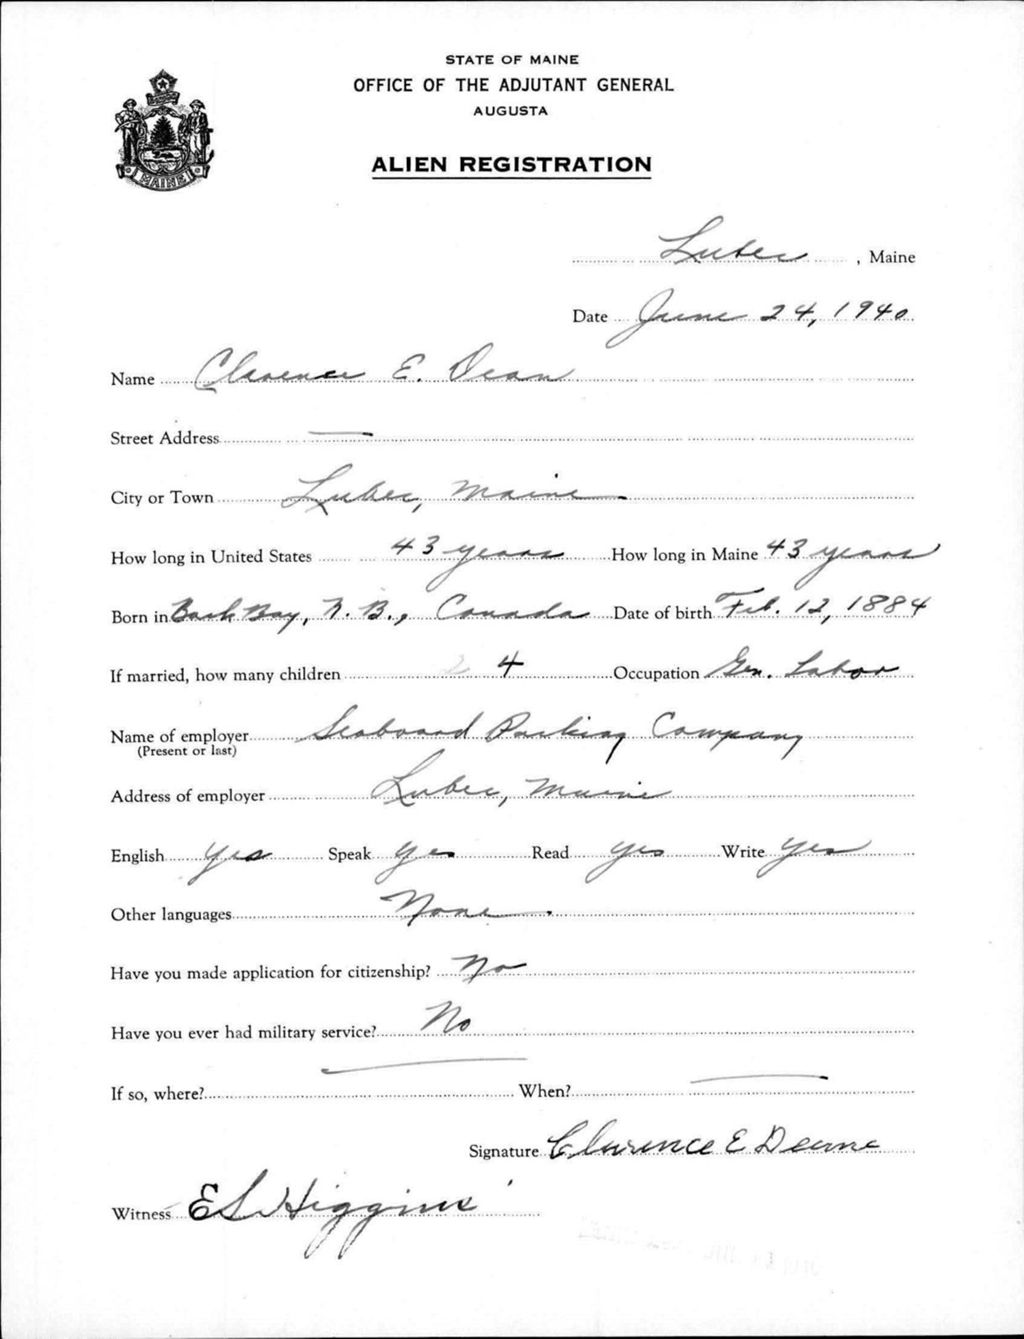 STATE OF MAINE
OFFICE OF THE ADJUTANT GENERAL
AUGUSTA
MAINE
ALIEN REGISTRATION
Lubec, Maine
Date June 24, 1940
Name Clarence E. Dean
Street Address —
City or Town Lubec, Maine
How long in United States 43 years How long in Maine 43 years
Born in Back Bay, N. B., Canada Date of birth Feb. 12, 1884
If married, how many children 4 Occupation Gen. Labor
Name of employer Seaboard Packing Company
(Present or last)
Address of employer Lubec, Maine
English Yes Speak Yes Read Yes Write Yes
Other languages None.
Have you made application for citizenship? No
Have you ever had military service? No
If so, where? — When? —
Signature Clarence E Deane
Witness E S Higgins